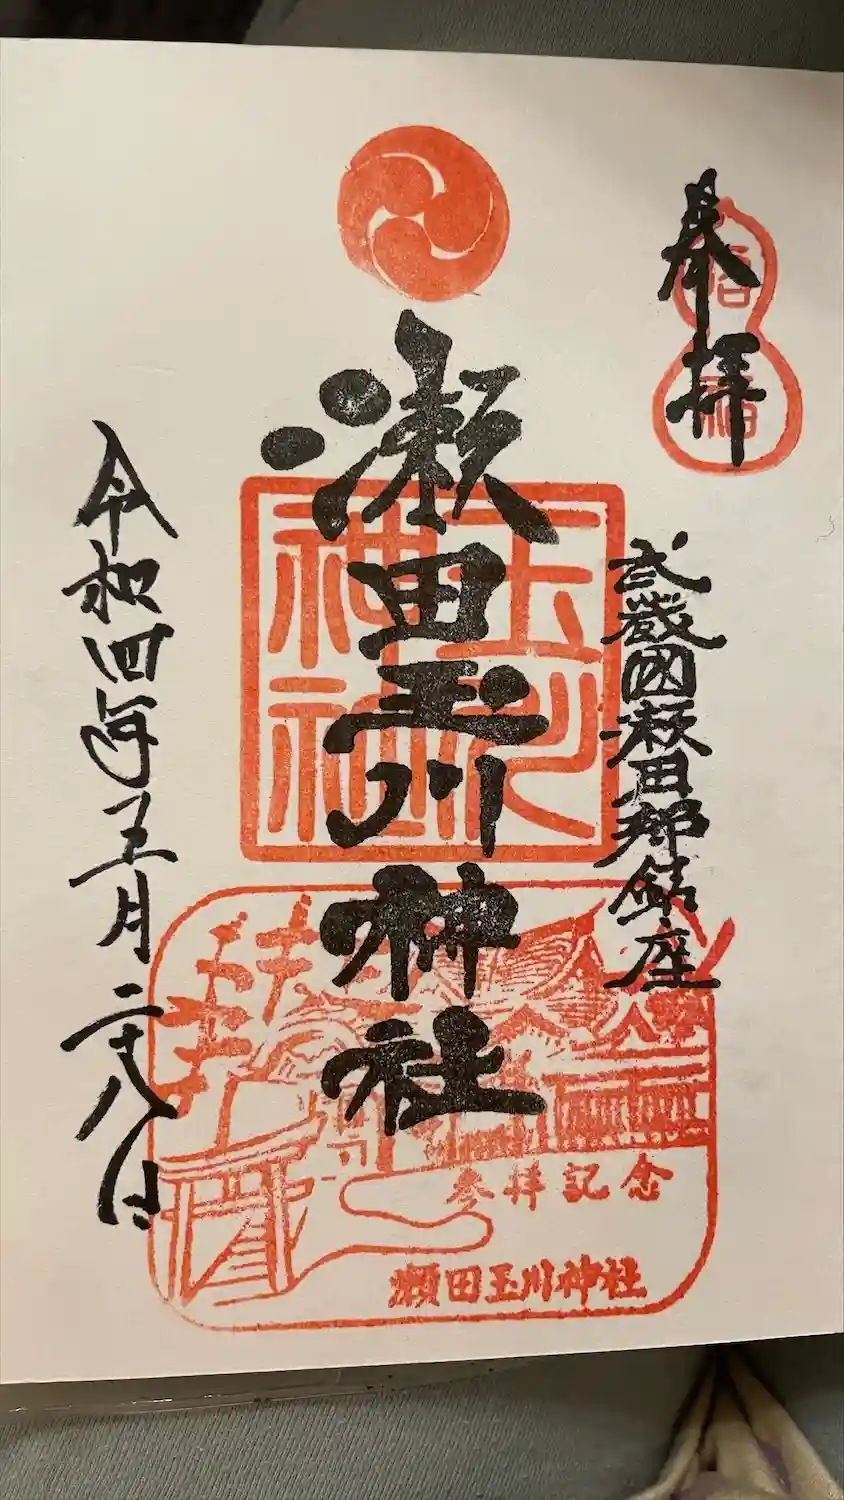 奉拝
武蔵国瀬田郷鎮座
瀬田玉川神社
玉川
神社
令和四年五月二十八日
参拝記念
瀬田玉川神社